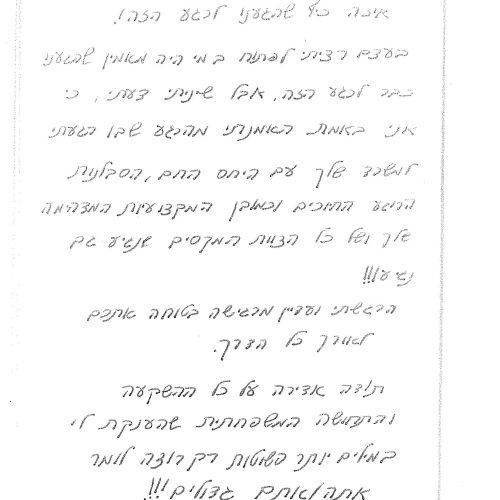 איזה כיף שהגענו לרגע הזה!
בעצם רציתי לפתוח במי היה מאמין שהגענו
כבר לרגע הזה, אבל שיניתי דעתי, כי
אני באמת האמנתי מהרגע שבו הגעתי
למשרד שלך עם היחס החם, הסבלנות
הרוגע החיוכים וכמובן המקצועיות המדהימה
שלך ושל כל הצוות המקסים שנגיע גם
נגיע!!!
הרגשתי ועדיין מרגישה בטוחה אתכם
לאורך כל הדרך.
תודה אדירה על כל ההשקעה
והתחושה המשפחתית שהענקת לי
במילים יותר פשוטות רק רוצה לומר
אתה/אתם גדולים!!!